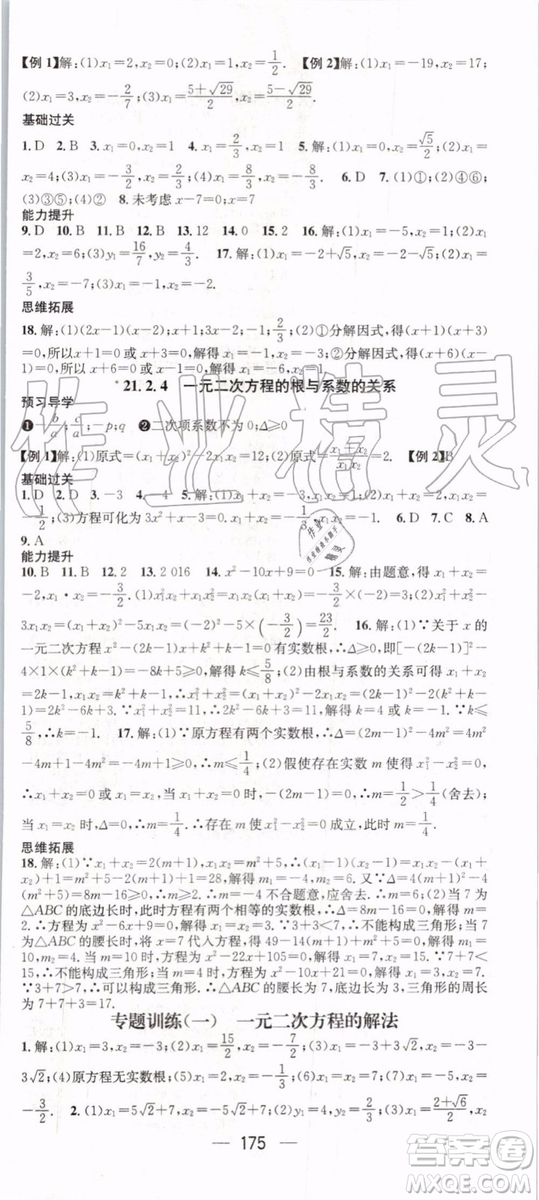 【例1】解:(1)x₁=2,x₂=0;(2)x₁=1,x₂=1/2. 【例2】解:(1)x₁=-19,x₂=17;
(2)x₁=3,x₂=-2/7;(3)x₁=(5+√29)/2,x₂=(5-√29)/2.
基础过关
1. D 2. B 3. x₁=0,x₂=1 4. x₁=2/3,x₂=3/2 5. 解:(1)x₁=0,x₂=√5/2;(2)x₁=4,
x₂=4;(3)x₁=-3/2,x₂=3/2;(4)x₁=0,x₂=-2/3. 6. D 7. (1)②;(2)④⑥;
(3)③⑤;(4)① 8. 未考虑 x-7=0;x=7
能力提升
9. D 10. B 11. B 12. B 13. 12 14. 0 15. 2 16. 解:(1)x₁=-5,x₂=1;(2)x₁
=2,x₂=6;(3)y₁=16/7,y₂=4/3. 17. 解:(1)x₁=-2+√5,x₂=-2-√5;(2)x₁=
3/5,x₂=-7;(3)x₁=-1,x₂=-2.
思维拓展
18. 解:(1)(2x-1)(x-2);x+1=0;x₁=-1;(2)①分解因式,得(x+1)(x-1)
=0,所以x+1=0或x-1=0,解得x₁=-1,x₂=1;②分解因式,得(x+1)(x-
1)=0,所以x+1=0或x-1=0,解得x₁=-1,x₂=1.
*21.2.4 一元二次方程的根与系数的关系
预习导学
❶-b/a;c/a;-p;q ❷二次项系数不为0;Δ≥0
【例1】解:(1)原式=(x₁+x₂)²-2x₁x₂=2;(2)原式=(x₁+x₂)/(x₁x₂)=2. 【例2】B
基础过关
1. D 2. D 3. -3 4. 4 5. 解:(1)x₁+x₂=-3,x₁x₂=1;(2)x₁+x₂=0,x₁x₂=
-1/2;(3)方程可化为3x²+x-3=0,x₁+x₂=-1/3,x₁x₂=-1. 6. D 7. C 8. A
9. A
能力提升
10. B 11. B 12. 2 13. 2 016 14. x²-6x+9=0 15. 解:由题意,得x₁+x₂=
-2,x₁·x₂=-3/2.(1)x₁+x₂+x₁x₂=-2-3/2=-7/2;(2)x₁²+x₂²-
3x₁x₂=(x₁+x₂)²-5x₁x₂=(-2)²-5×(-3/2)=23/2. 16. 解:(1)∵关于x的
一元二次方程x²-(2k-1)x+k²+k-1=0有实数根,∴Δ≥0,即[-(2k-1)]²-
4×1×(4k²+k-1)=-8k+5≥0,解得k≤5/8;(2)由根与系数的关系可得x₁+x₂
=2k-1,x₁x₂=k²+k-1,∴x₁²+x₂²=(x₁+x₂)²-2x₁x₂=(2k-1)²-2(k²+k-
1)=2k²-6k+3.∵x₁²+x₂²=11,∴2k²-6k+3=11,解得k₁=4,k₂=-1.∵k≤
5/8,∴k=-1. 17. 解:(1)∵原方程有两个实数根,∴Δ=(2m-1)²-4m²=4m²
-4m+1-4m²=1-4m≥0,∴m≤1/4;(2)假使存在m,使得x₁²-x₂²=0成立,
∵x₁+x₂=1-2m,x₁x₂=m²,∴x₁+x₂=0时,2m-1=0,∴m=1/2>1/4(舍去);
当x₁=x₂时,1-4m=0,∴m=1/4.∴存在m使x₁²-x₂²=0成立,此时m=1/4.
思维拓展
18. 解:(1)∵x₁+x₂=2(m+1),x₁x₂=m²+5,∴(x₁-1)(x₂-1)=x₁x₂-(x₁+
x₂)+1=m²+5-2(m+1)+1=28,解得m=-4或m=6.又∵Δ=4(m+1)²-4
(m²+5)=8m-16≥0,解得m≥2,∴m=-4不合题意,应舍去,∴m=6;(2)当7为
△ABC的底边长时,此时方程有两个相等的实数根,即8m-16=0,解得m=2.当m
=2时,方程为x²-6x+9=0,∴x₁=x₂=3.∵3+3<7,∴不能构成三角形;当7
为△ABC的腰长时,将x=7代入方程,得49-14(m+1)+m²+5=0,解得m₁=
10,m₂=4.当m=10时,方程为x²-22x+105=0,解得x₁=7,x₂=15.∵7+7<
15,∴不能构成三角形;当m=4时,方程为x²-10x+21=0,解得x₁=3,x₂=7,
∵3+7>7,∴能构成三角形,此时三角形的周长
为7+7+3=17.
专题训练(一) 一元二次方程的解法
1. 解:(1)x₁=3,x₂=-1;(2)x₁=15/2,x₂=-7/2;(3)x₁=-3+3√2,x₂=-3-
3√2;(4)原方程无实数根;(5)x₁=-3+2√3,x₂=-3-2√3;(6)x₁=3/2,x₂=
-3/2 2. (1)x₁=5√2+7,x₂=-5√2+7;(2)x₁=1,x₂=1/3;(3)x₁=(2+√6)/2,
175
作业精灵
答案圈